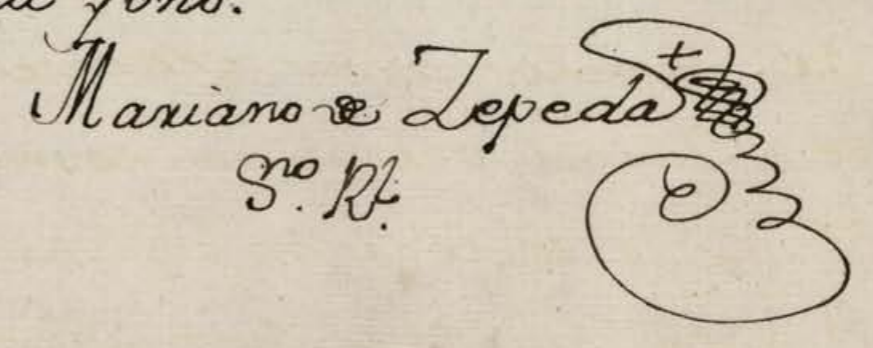 Mariano de Zepeda
Sno. Rl.